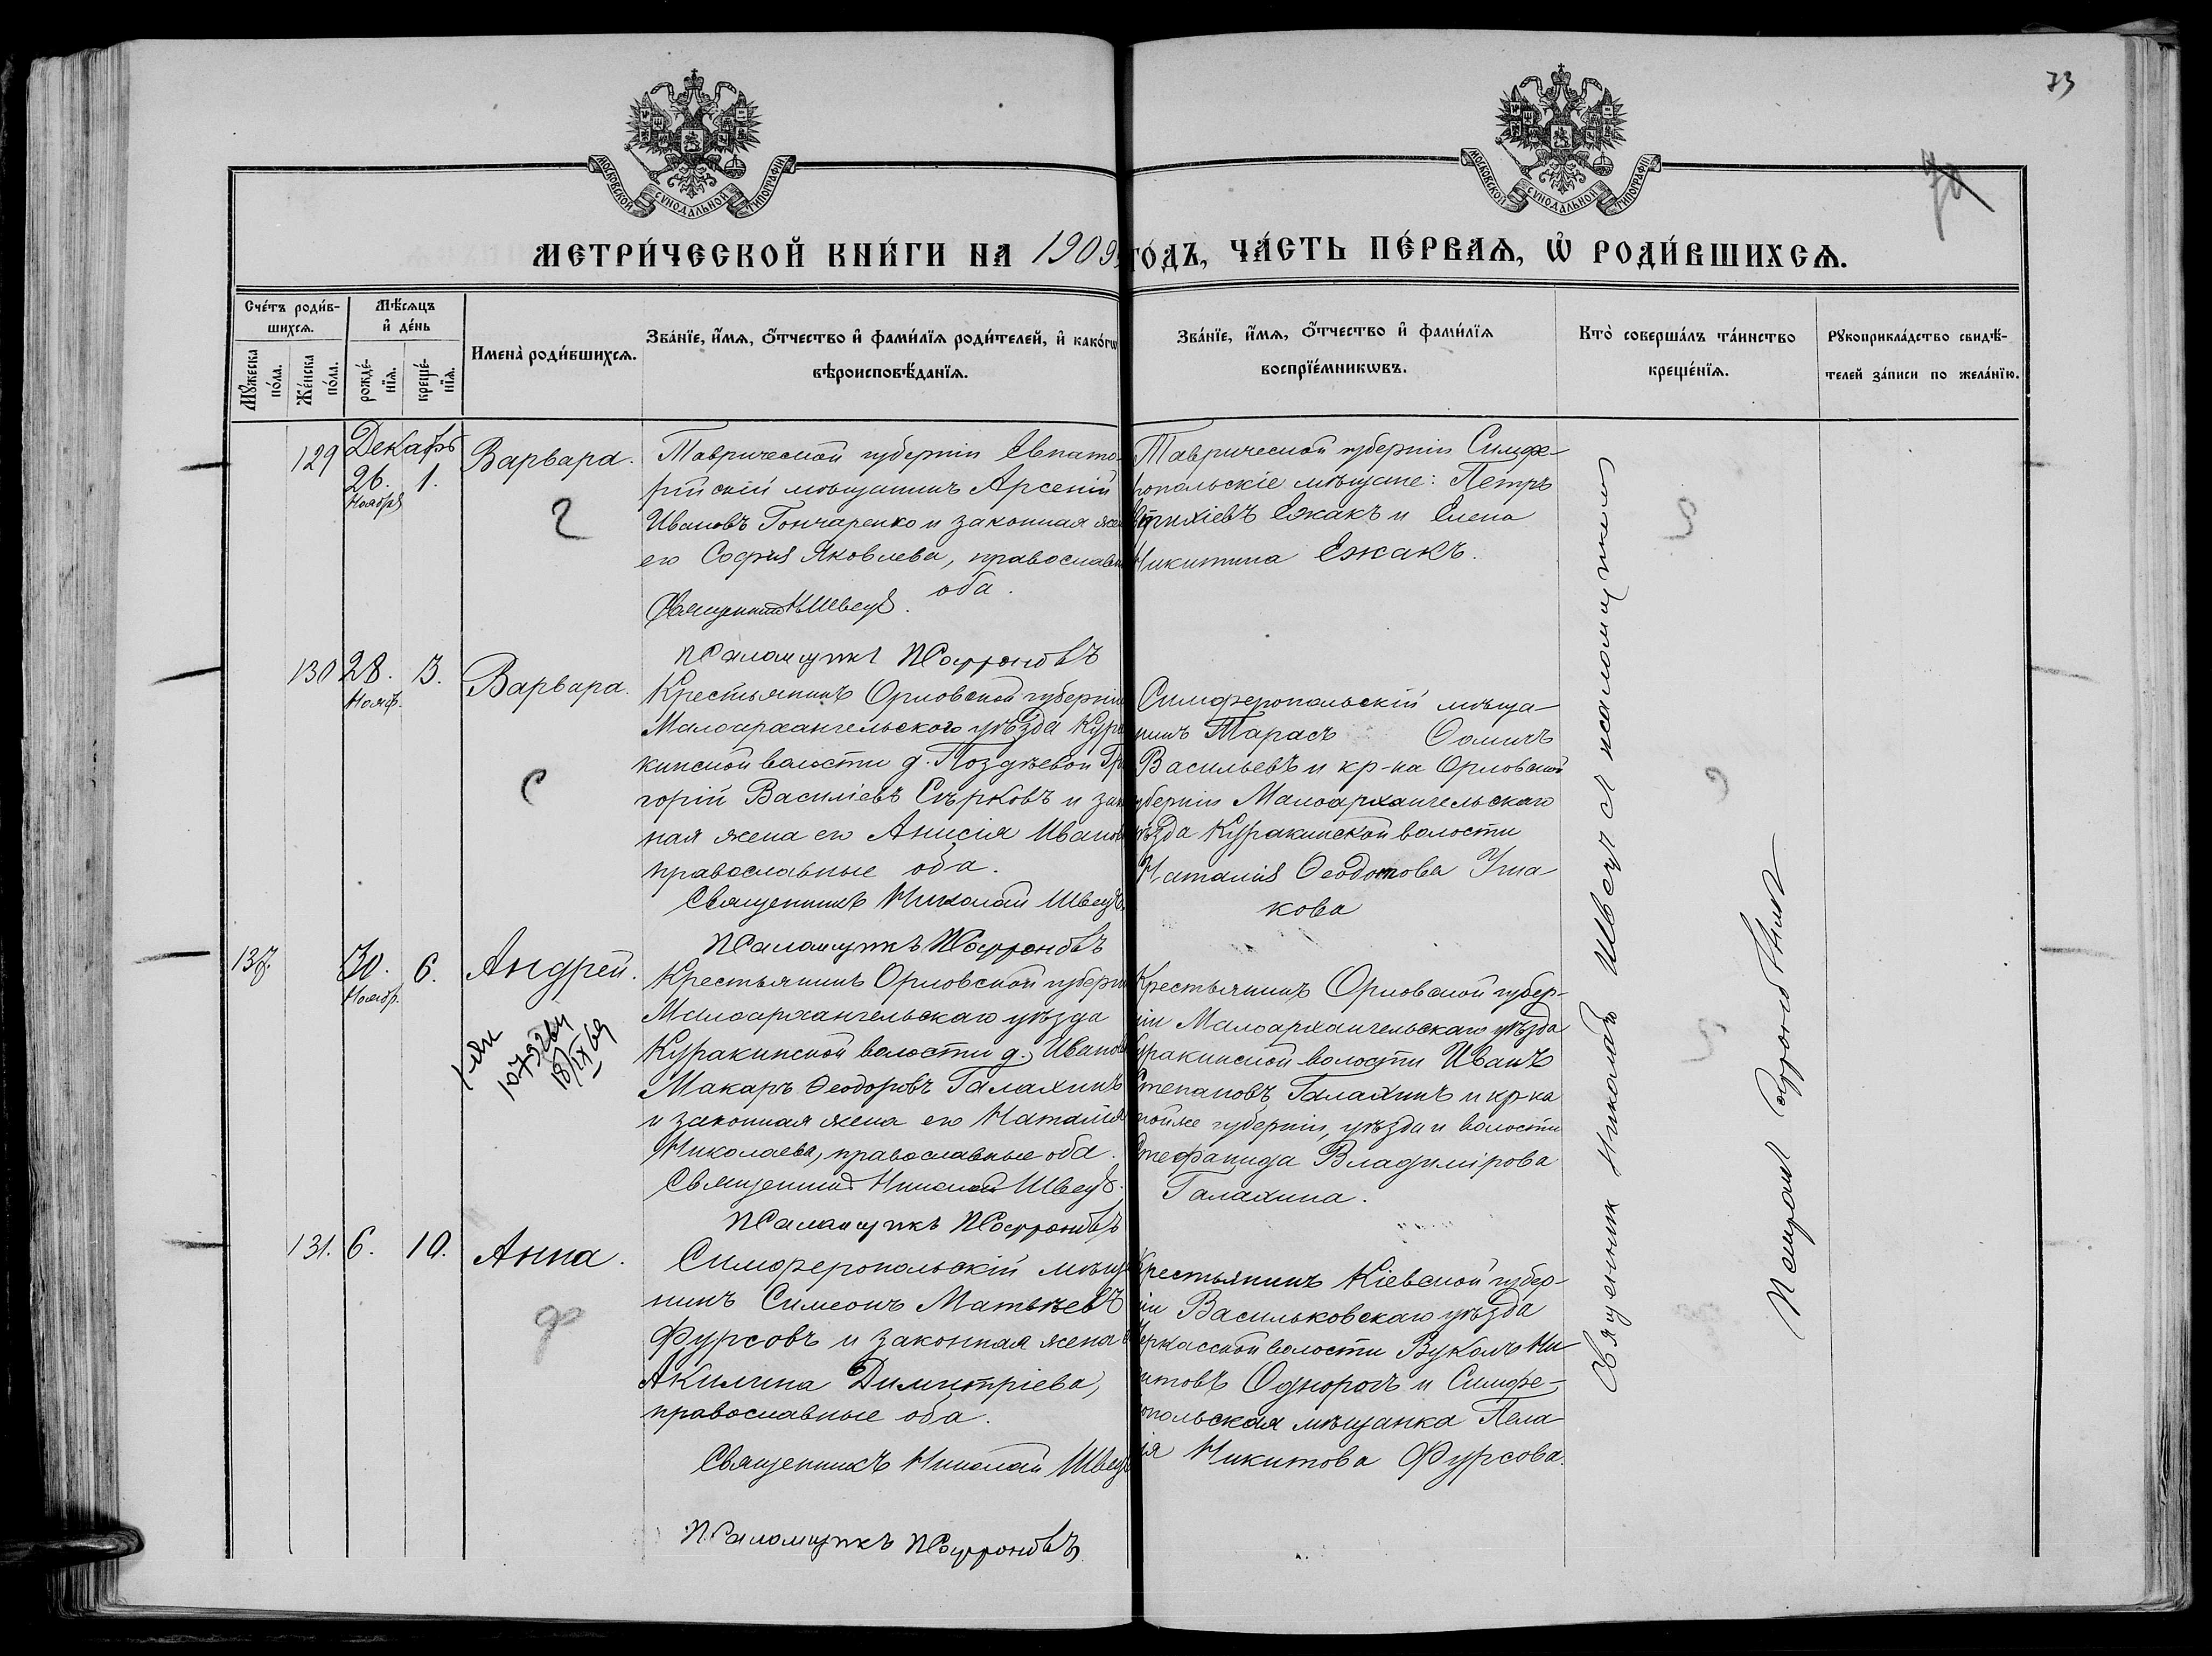 73
70
МОСКОВСКОЙ СѴНОДАЛЬНОЙ ТИПОГРАФІИ
МОСКОВСКОЙ СѴНОДАЛЬНОЙ ТИПОГРАФІИ
МЕТРИ́ЧЕСКОЙ КНИ́ГИ НА 1909 ГО́ДЪ, ЧА́СТЬ ПЕ́РВАѦ, Ѡ҆ РОДИ́ВШИХСѦ.
Сче́тъ роди́в-
шихсѧ.
Мꙋ́жеска
по́ла.
Же́нска
по́ла.
Мѣ́сѧцъ
и҆ де́нь
рожде́-
нїѧ.
креще́-
нїѧ.
Имена̀ роди́вшихсѧ.
Зва́нїе, и҆́мѧ, ѻ҆́тчество и҆ фами́лїѧ роди́телей, и҆ како́гѡ
вѣроисповѣ́данїѧ.
Зва́нїе, и҆́мѧ, ѻ҆́тчество и҆ фами́лїѧ
воспрїе́мникѡвъ.
Кто̀ соверша́лъ та́инство
креще́нїѧ.
Рꙋкоприкла́дство свидѣ́-
телей за́писи по жела́нїю.
129
Декабрь
26. 1.
Ноября
Варвара.
Таврической губерніи Евпато-
рійскій мѣщанинъ Арсеній
Ивановъ Гончаренко и законная жен
его Софія Яковлева, православн
оба.
Священникъ Н Швецъ.
Псаломщикъ П Сафроновъ
Таврической губерніи Симфе-
ропольскіе мѣщане: Петръ
Ежакъ и Елена
Никитина Ежакъ.
130 28. 3.
Ноябр.
Варвара.
Крестьянинъ Орловской губерніи
Малоархангельскаго уѣзда Кура
кинской волости д. Поздѣевой Гри
горій Василіевъ Сѣрковъ и зак
ная жена его Анисія Иванов
православные оба.
Священникъ Николай Швецъ.
Псаломщикъ П Сафроновъ
Симферопольскій мѣща-
нинъ Тарасъ Ѳомичъ
Васильевъ и кр-ка Орловской
губерніи Малоархангельскаго
уѣзда Куракинской волости
Наталія Ѳеодотова Уша
кова
137. 30. 6.
Ноябр.
Андрей.
107926ч
18/IX 69
Крестьянинъ Орловской губерн
Малоархангельскаго уѣзда
Куракинской волости д. Иванов
Макаръ Ѳеодоровъ Галахинъ
и законная жена его Наталія
Николаева, православные оба.
Священникъ Николай Швецъ.
Псаломщикъ П Сафроновъ
Крестьянинъ Орловской губер-
ніи Малоархангельскаго уѣзда
Куракинской волости Иванъ
Степановъ Галахинъ и кр-ка
той же губерніи, уѣзда и волости
Стефанида Владимірова
Галахина.
131. 6. 10.
Анна.
Ф
Симферопольскій мѣща
нинъ Симеонъ Матвѣевъ
Фурсовъ и законная жена е
Акилина Димитріева,
православные оба.
Священникъ Николай Швецъ
Псаломщикъ П Сафроновъ
Крестьянинъ Кіевской губер-
ніи Васильковскаго уѣзда
Черкасской волости Вуколъ Ни
китовъ Однорогъ и Симфе-
ропольская мѣщанка Пела
гія Никитова Фурсова.
Священникъ Николай Швецъ съ псаломщикомъ